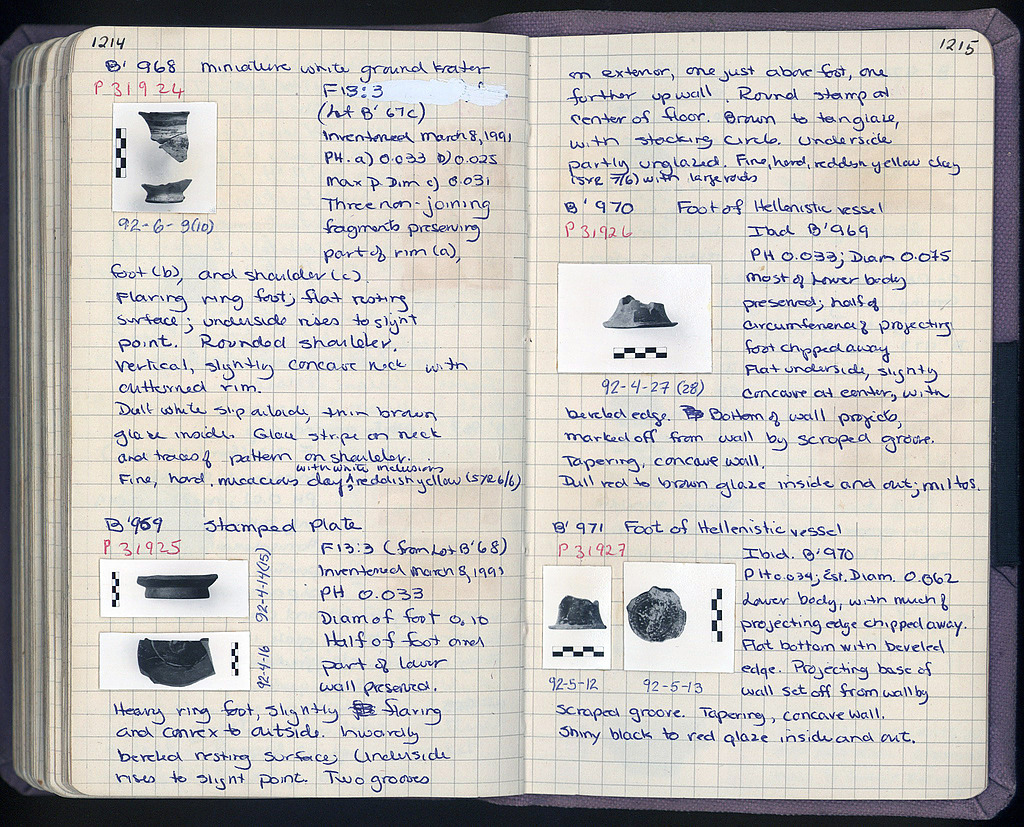 1214
B' 968 miniature white ground krater
P 31924
F13:3
(Lot B' 67c)
Inventoried March 8, 1991
PH. a) 0.033 b) 0.025
Max P. Dim c) 0.031
Three non-joining
fragments preserving
part of rim (a),
92-6-9(10)
foot (b), and shoulder (c).
Flaring ring foot; flat resting
surface; underside rises to slight
point. Rounded shoulder.
Vertical, slightly concave neck with
outturned rim.
Dull white slip outside, thin brown
glaze inside. Glaze stripe on neck
and traces of pattern on shoulder.
with white inclusions
Fine, hard, micacious clay, reddish yellow (5YR 6/6)
B' 969 Stamped Plate
P 31925
F13:3 (from Lot B' 68)
Inventoried March 8, 1991
PH 0.033
Diam of foot 0.10
Half of foot and
part of lower
wall preserved.
92-4-14(15)
92-4-16
Heavy ring foot, slightly flaring
and convex to outside. Inwardly
beveled resting surface; Underside
rises to slight point. Two grooves
1215
on exteror, one just above foot, one
further up wall. Round stamp at
center of floor. Brown to tan glaze,
with stacking circle. Underside
partly unglazed. Fine, hard, reddish yellow clay
(5YR 7/6) with large voids
B' 970 Foot of Hellenistic vessel
P 31926
Ibid B' 969
PH 0.033; Diam 0.075
Most of lower body
preserved; half of
circumference of projecting
foot chipped away
Flat underside, slightly
concave at center, with
92-4-27 (28)
beveled edge. Bottom of wall projects,
marked off from wall by scraped groove.
Tapering, concave wall.
Dull red to brown glaze inside and out; miltos.
B' 971 Foot of Hellenistic vessel
P 31927
Ibid. B' 970
PH 0.034; Est. Diam. 0.062
Lower body, with much of
projecting edge chipped away.
Flat bottom with beveled
edge. Projecting base of
wall set off from wall by
92-5-12 92-5-13
scraped groove. Tapering, concave wall.
Shiny black to red glaze inside and out.